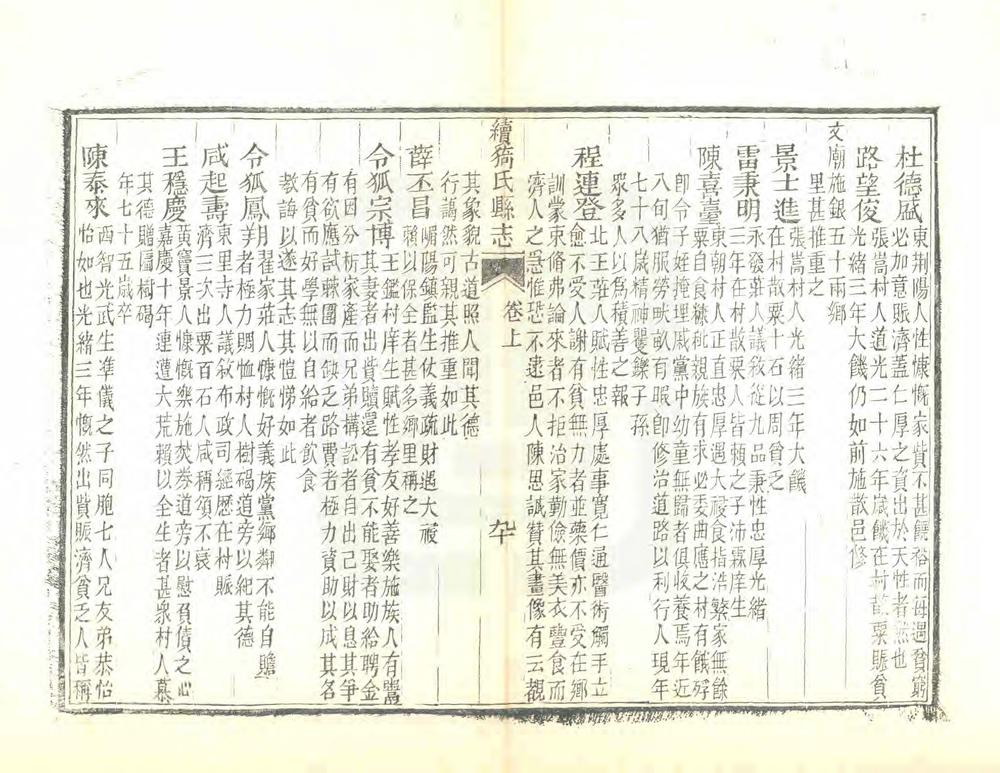 杜德盛東荆陽人性慷慨家貲不甚饒裕而每遇貧窮
必加意賑濟蓋仁厚之資出於天性者然也
路望俊張嵩村人道光二十六年歲饑在村散粟賑貧
光緒三年大饑仍如前施散邑修
文廟施銀五十兩鄉
里甚推重之
景士進張嵩村人光緒三年大饑
在村散粟十石以周貧乏
雷秉明永發莊人議敘從九品秉性忠厚光緒
三年在村散粟人皆頼之子沛霖庠生
陳喜臺東朝村人正直忠厚遇大祲食指浩繁家無餘
粟自食糠秕親族有求必委曲應之村有餓殍
卽令子姪掩埋戚黨中幼童無歸者俱收養焉年近
八旬猶服勞畎畝有暇卽修治道路以利行人現年
七十八歲精神矍鑠子孫
眾多人以為積善之報
程連登北王莊人賦性忠厚處事寬仁通醫術觸手立
愈不受人謝有貧無力者並藥價亦不受在鄉
訓蒙束脩弗論來者不拒治家勤儉無美衣豐食而
濟人之急惟恐不逮邑人陳思誠贊其畫像有云觀
續猗氏縣志
卷上
卆
其象貌古道照人聞其德
行藹然可親其推重如此
薛丕昌嵋陽鎮監生仗義疏財遇大祲
賴以保全者甚多鄉里稱之
令狐宗博王鑑村庠生賦性孝友好善樂施族人有鬻
其妻者出貲贖還有貧不能娶者助給聘金
有因分析家產而兄弟構訟者自出己財以息其爭
有欲應試棘圍而缺乏路費者極力資助以成其名
有貧而好學無以自給者飲食
教誨以遂其志其愷悌如此
令狐鳳翔翟家莊人慷慨好義族黨鄉鄰不能自贍
者極力賙恤村人樹碣道旁以紀其德
咸起壽東里寺人議敘布政司經歷在村賑
濟三次出粟百石人咸稱頌不衰
王穩慶黃竇景人慷慨樂施焚券道旁以慰負債之心
嘉慶十年連遭大荒賴以全生者甚衆村人慕
其德贈匾樹碣
年七十五歲卒
陳泰來西智光武生準儀之子同胞七人兄友弟恭怡
怡如也光緒三年慨然出貲賑濟貧乏人皆稱